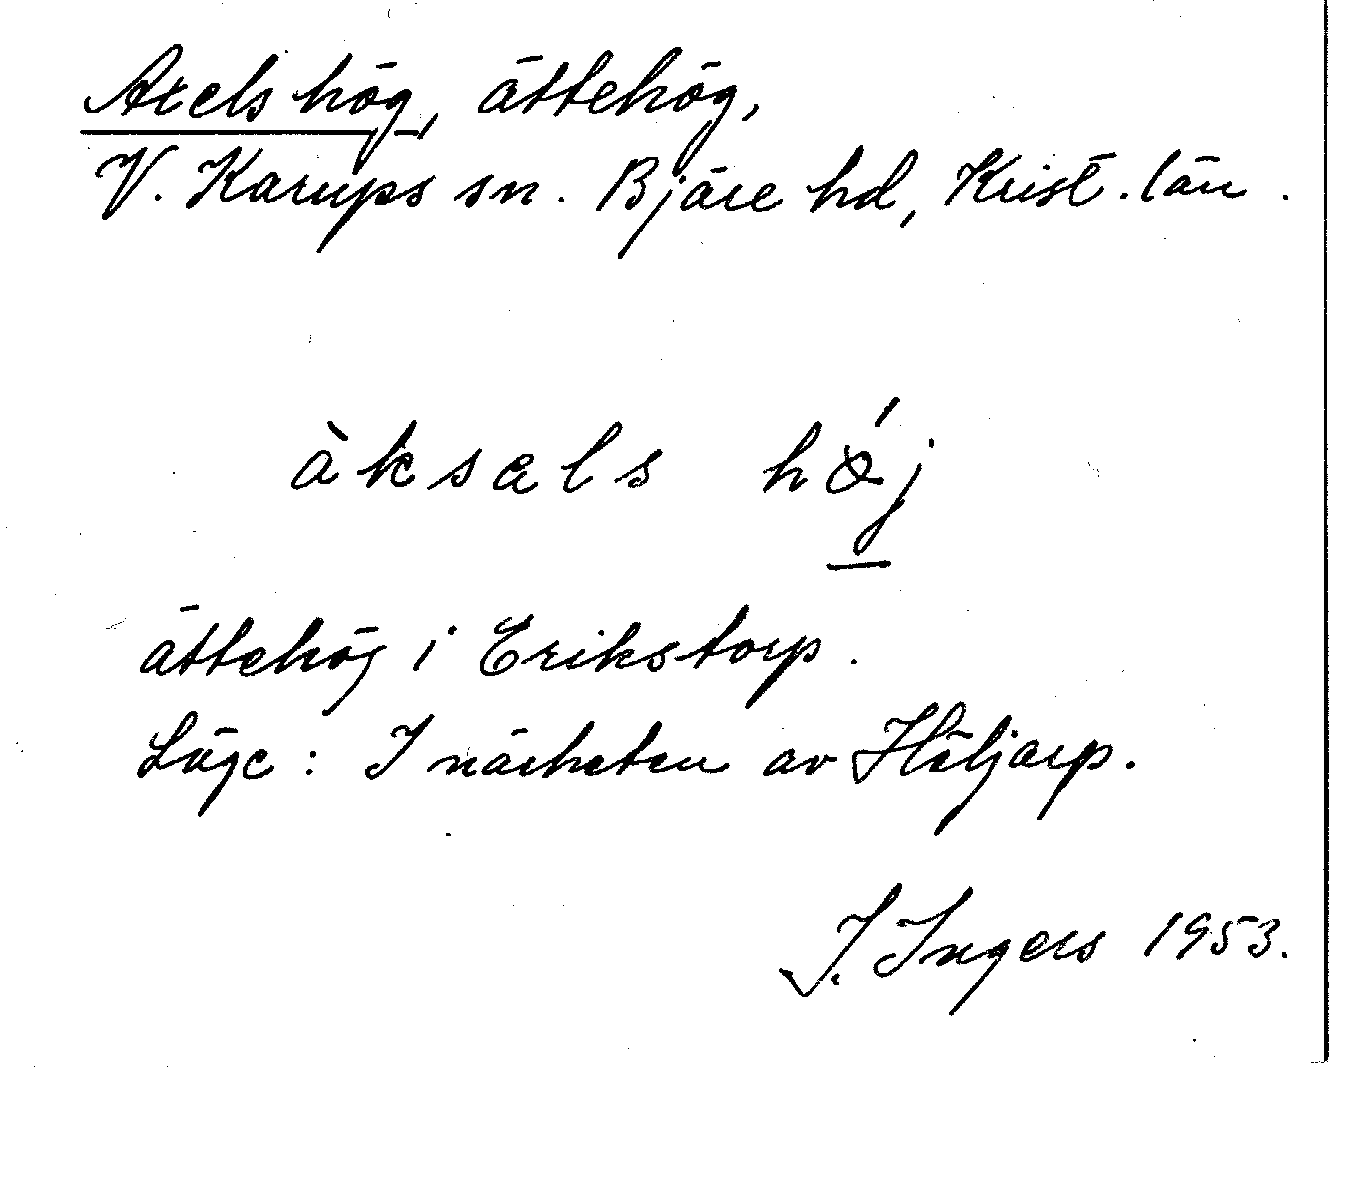 Axels hög, ättehög,
V. Karups sn. Bjäre hd, Krist. län.
àksəls hǿj
ättehög i Erikstorp.
Läge: I närheten av Häljarp.
I. Ingers 1953.